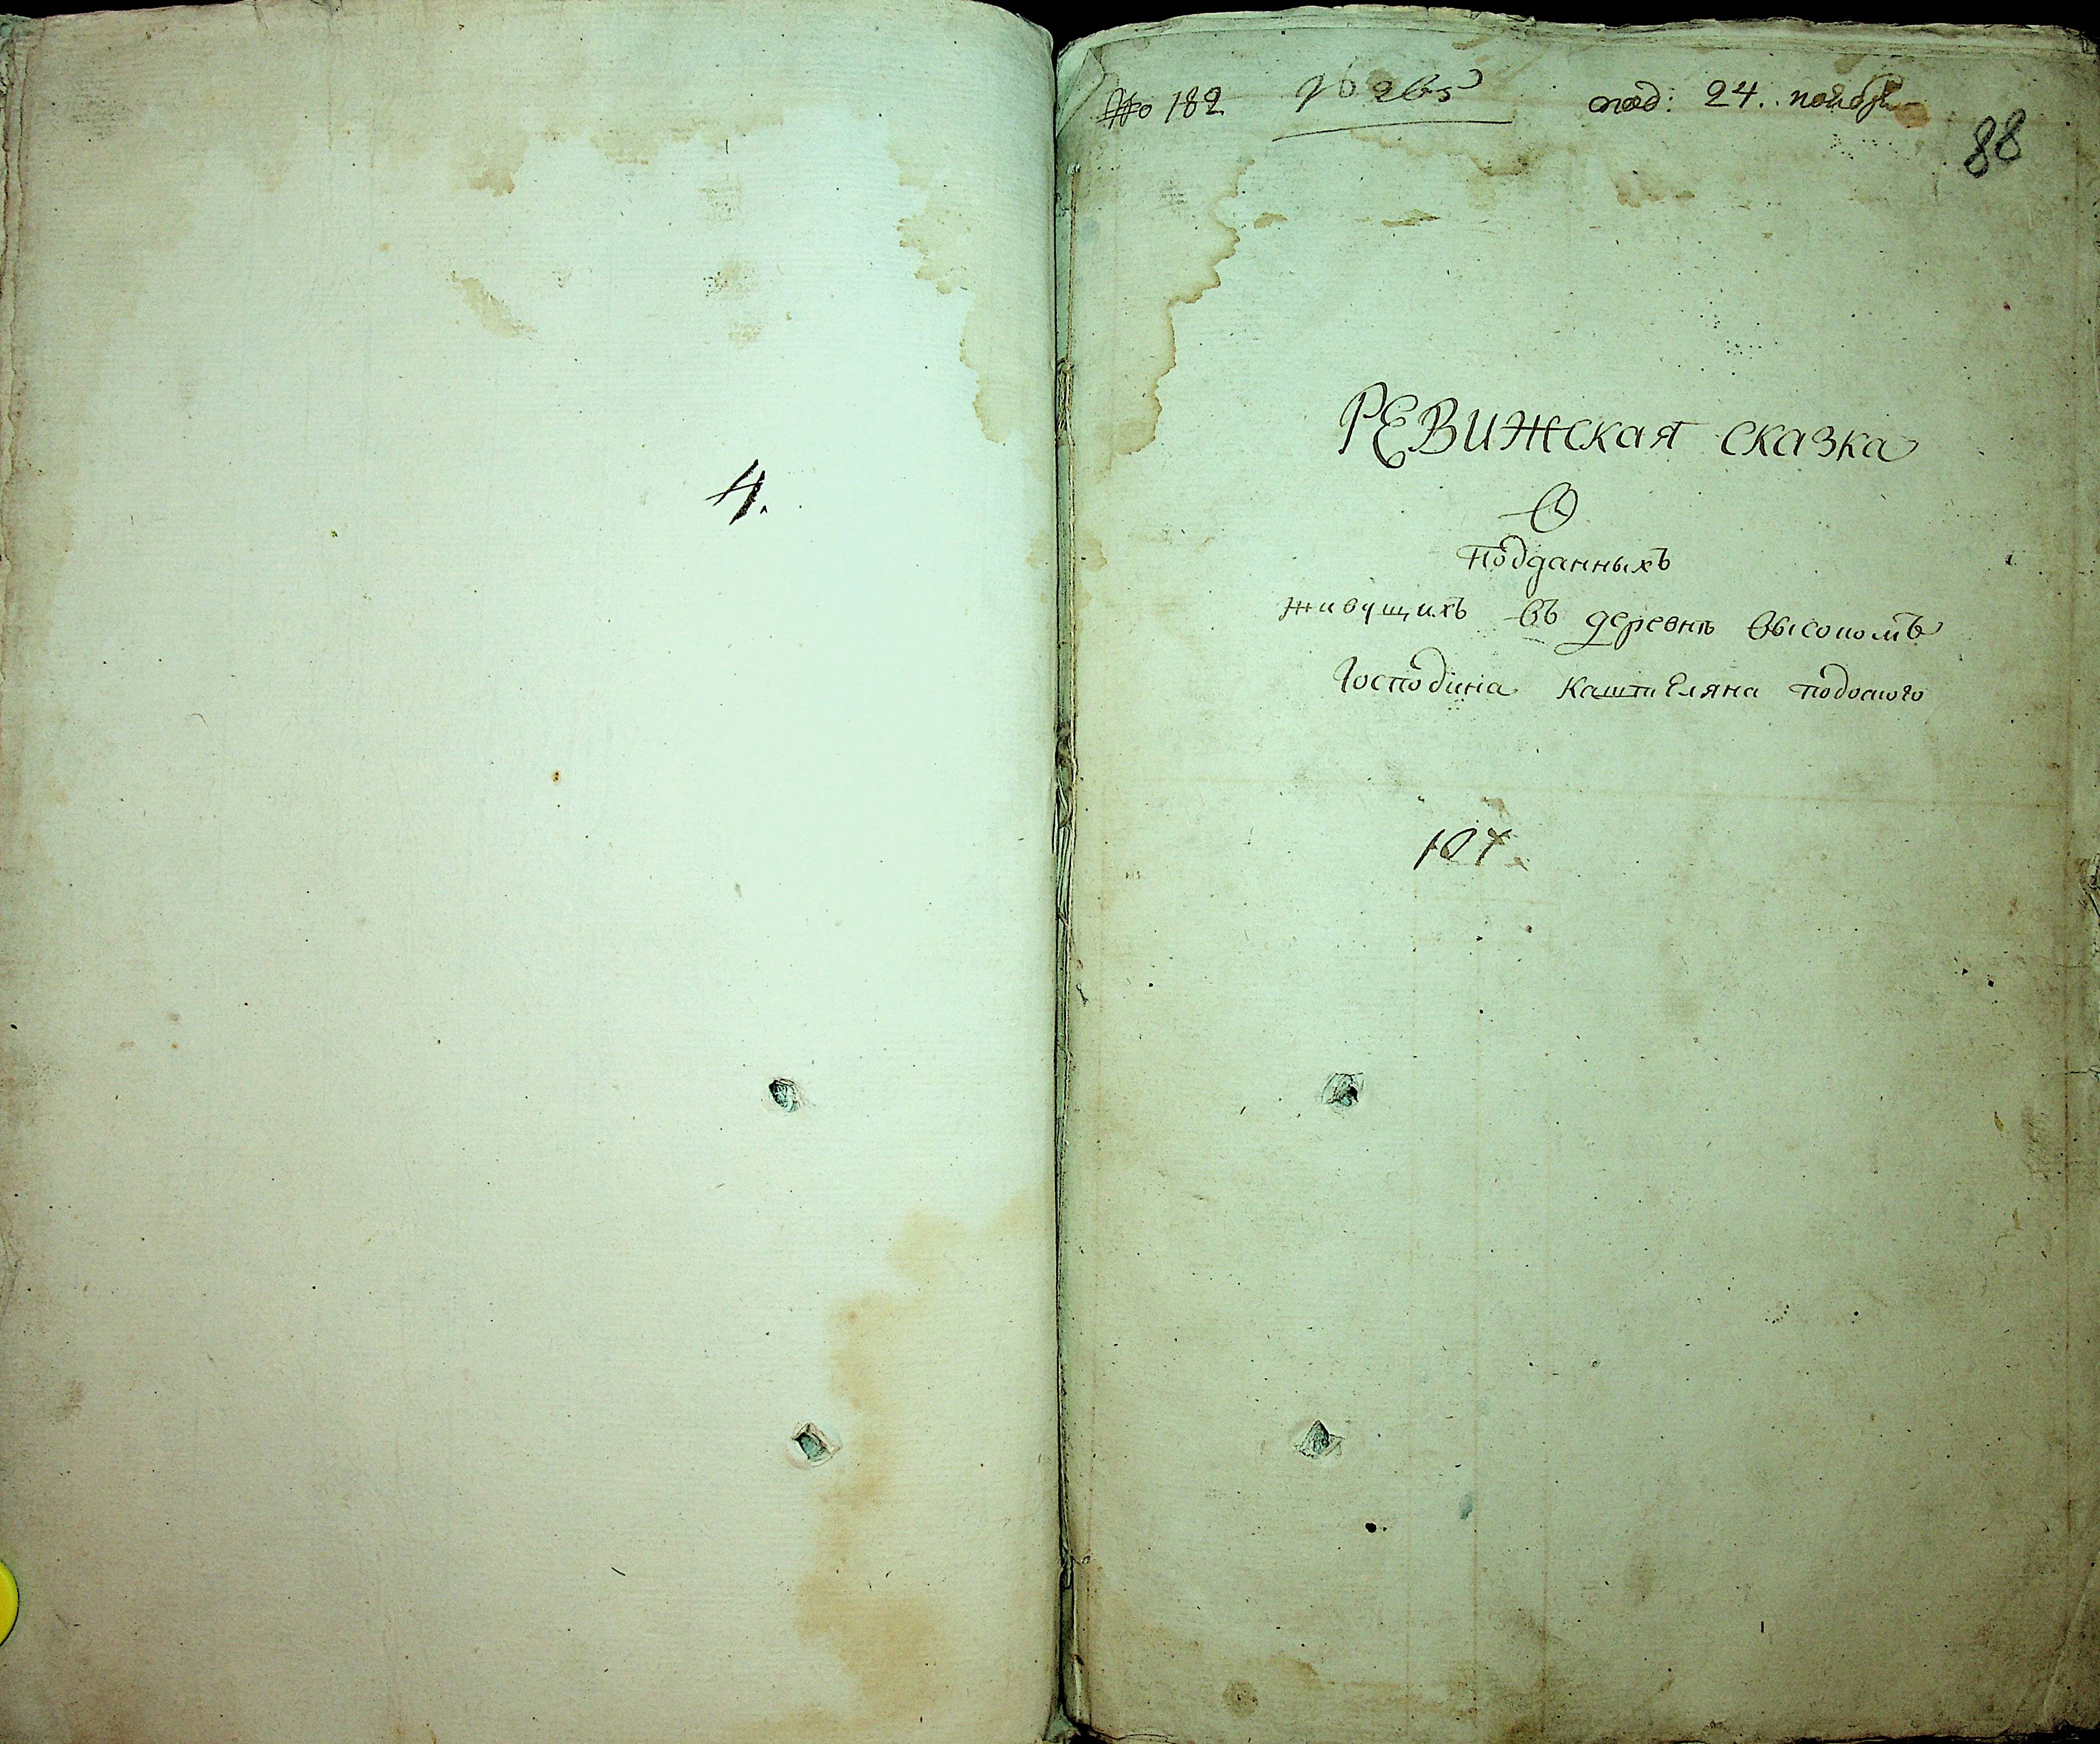 4.
№ 182 № 265 под: 24. ноября
88
РЕВИЖская сказка
О
подданныхъ
живущихъ въ деревнѣ высокомъ
Господина каштеляна
107.